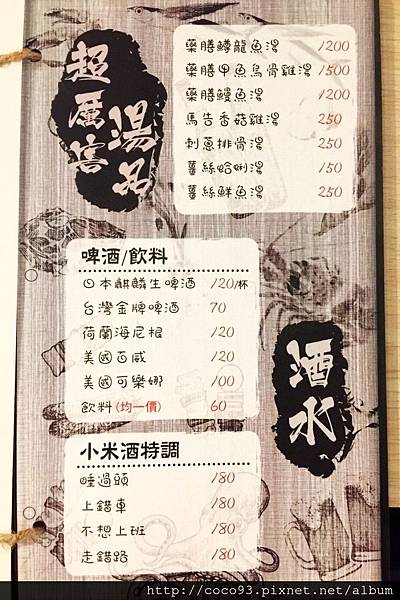 超厲害
湯品
藥膳鱘龍魚湯 1200
藥膳甲魚烏骨雞湯 1500
藥膳鰻魚湯 1200
馬告香菇雞湯 250
刺蔥排骨湯 250
薑絲蛤蜊湯 150
薑絲鮮魚湯 250
啤酒/飲料
日本麒麟生啤酒 120/杯
台灣金牌啤酒 70
荷蘭海尼根 120
美國百威 120
美國可樂娜 100
飲料(均一價) 60
酒水
小米酒特調
睡過頭 180
上錯車 180
不想上班 180
走錯路 180
http://coco93.pixnet.net/album